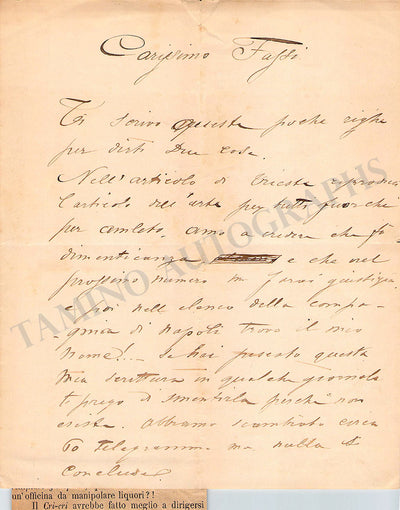 Carissimo Fassi
Ti scrivo queste poche righe
per dirti due cose.
Nell'articolo di Trieste riproduci
l'articolo dell'arte per tutti fuorché
per Amleto. Amo a credere che fu
dimenticanza e che nel
prossimo numero mi farai giustizia.
nell'elenco della compa-
gnia di Napoli trovo il mio
nome!... Se hai pescato questa
mia scrittura in qualche giornale
ti prego di smentirla perché non
esiste. Abbiamo scambiato circa
10 telegrammi ma nulla si
concluse.
TAMINO AUTOGRAPHS
un'officina da manipolare liquori?!
Il Cri-cri avrebbe fatto meglio a dirigersi